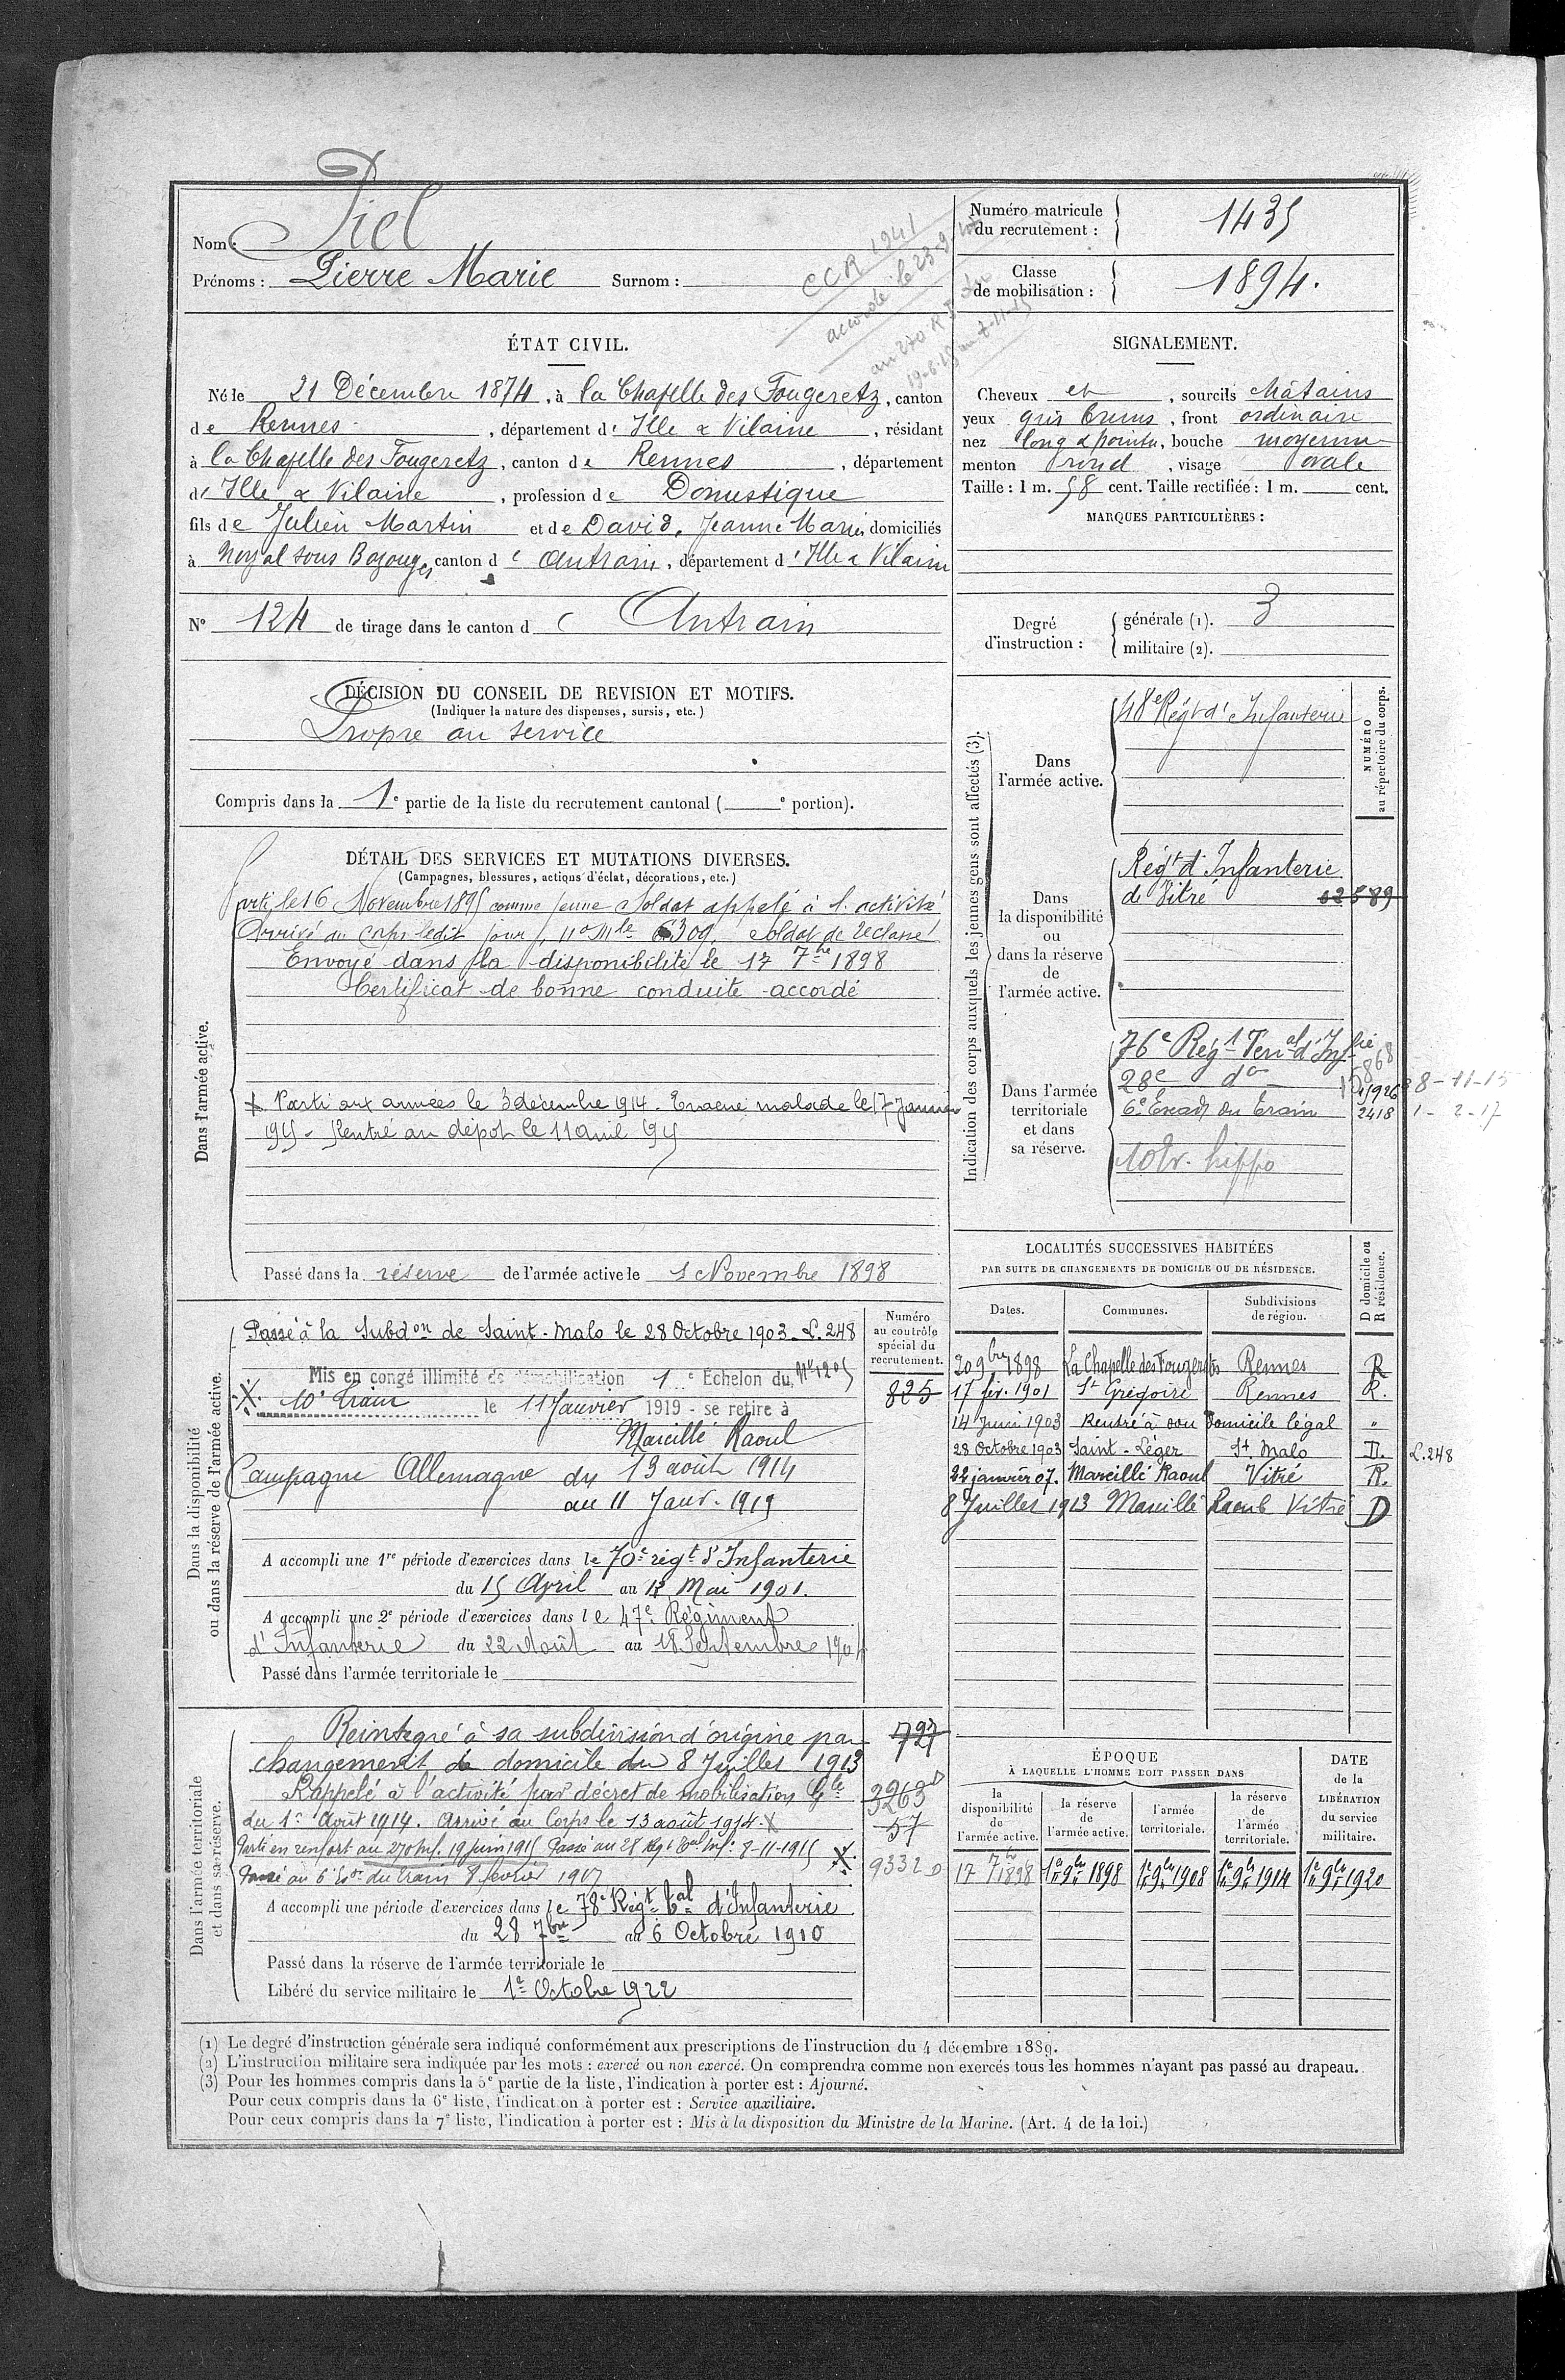 Nom : Piel
Prénoms : Pierre Marie Surnom :
CCR 1941
accordé le 23-9-
au 270 R I du
19-6-15 au 7-11-15
Numéro matricule du recrutement : 1435
Classe de mobilisation : 1894.
ÉTAT CIVIL.
Né le 21 Décembre 1874, à la Chapelle des Fougeretz, canton
de Rennes, département d'Ille & Vilaine, résidant
à la Chapelle des Fougeretz, canton de Rennes, département
d'Ille & Vilaine, profession de Domestique
fils de Julien Martin et de David, Jeanne Marie, domiciliés
à Noyal sous Bazouges, canton d'Antrain, département d'Ille & Vilaine
N° 124 de tirage dans le canton d'Antrain
SIGNALEMENT.
Cheveux et, sourcils châtains
yeux gris bruns, front ordinaire
nez long & pointu, bouche moyenne
menton rond, visage ovale
Taille : 1 m. 58 cent. Taille rectifiée : 1 m. cent.
MARQUES PARTICULIÈRES :
Degré d'instruction :
générale (1). 3
militaire (2).
DÉCISION DU CONSEIL DE REVISION ET MOTIFS.
(Indiquer la nature des dispenses, sursis, etc.)
Propre au service
Compris dans la 1e partie de la liste du recrutement cantonal ( e portion).
DÉTAIL DES SERVICES ET MUTATIONS DIVERSES.
(Campagnes, blessures, actions d'éclat, décorations, etc.)
Dans l'armée active.
Parti le 16 Novembre 1895 comme jeune soldat appelé à l'activité
Arrivé au corps ledit jour, no Mle 6309, soldat de 2e classe
Envoyé dans la disponibilité le 17 7bre 1898
Certificat de bonne conduite accordé
X Parti aux armées le 3 décembre 1914. Evacué malade le 17 Janvier
1915 - Rentré au dépôt le 11 avril 1915
Passé dans la réserve de l'armée active le 1 Novembre 1898
Indication des corps auxquels les jeunes gens sont affectés (3).
NUMÉRO
au répertoire du corps.
Dans l'armée active.
48e Régt d'Infanterie
Dans la disponibilité ou dans la réserve de l'armée active.
Régt d'Infanterie
de Vitré 02589
Dans l'armée territoriale et dans sa réserve.
76e Régt Terral d'Infie 15868
28e do 11926 8-11-15
6e Escadn du Train 2418 1-2-17
10 tr. hippo
LOCALITÉS SUCCESSIVES HABITÉES
PAR SUITE DE CHANGEMENTS DE DOMICILE OU DE RÉSIDENCE.
Dates. Communes. Subdivisions de région. D domicile ou R résidence.
20 9bre 1898 La Chapelle des Fougeretz Rennes R
17 fév. 1901 St Grégoire Rennes R.
14 Juin 1903 Rentré à son Domicile légal "
28 Octobre 1903 Saint-Léger St Malo D. L.248
22 janvier 07. Marcillé Raoul Vitré R.
8 Juillet 1913 Marcillé Raoul Vitré D
Dans la disponibilité
ou dans la réserve de l'armée active.
Passé à la Subdon de Saint-Malo le 28 Octobre 1903. L. 248
Numéro au contrôle spécial du recrutement.
825
Mis en congé illimité de démobilisation 1e Échelon du, No 1205
X 10e Train le 11 Janvier 1919 - se retire à
Marcillé Raoul
Campagne Allemagne du 13 août 1914
au 11 Janv. 1919
A accompli une 1re période d'exercices dans le 70e régt d'Infanterie
du 15 Avril au 12 Mai 1901.
A accompli une 2e période d'exercices dans le 47e Régiment
d'Infanterie du 22 Août au 18 Septembre 1904
Passé dans l'armée territoriale le
Dans l'armée territoriale
et dans sa réserve.
Réintegré à sa subdivision d'origine par 727
changement de domicile du 8 Juillet 1913
Rappelé à l'activité par décret de mobilisation Gle 3263
du 1er Août 1914. Arrivé au Corps le 13 août 1914. X 57
Parti en renfort au 270 Inf. 19 juin 1915 Passé au 28 Régt Tal Inf. 8-11-1915 X
Passé au 6e Eson du train 1 février 1917 9332
A accompli une période d'exercices dans le 78e Régt tal d'Infanterie
du 28 7bre au 6 Octobre 1910
Passé dans la réserve de l'armée territoriale le
Libéré du service militaire le 1er Octobre 1922
ÉPOQUE
À LAQUELLE L'HOMME DOIT PASSER DANS
la disponibilité de l'armée active. la réserve de l'armée active. l'armée territoriale. la réserve de l'armée territoriale.
DATE de la LIBÉRATION du service militaire.
17 7bre 1898 1er 9bre 1898 1er 9bre 1908 1er 9bre 1914 1er 9bre 1920
(1) Le degré d'instruction générale sera indiqué conformément aux prescriptions de l'instruction du 4 décembre 1889.
(2) L'instruction militaire sera indiquée par les mots : exercé ou non exercé. On comprendra comme non exercés tous les hommes n'ayant pas passé au drapeau.
(3) Pour les hommes compris dans la 5e partie de la liste, l'indication à porter est : Ajourné.
Pour ceux compris dans la 6e liste, l'indication à porter est : Service auxiliaire.
Pour ceux compris dans la 7e liste, l'indication à porter est : Mis à la disposition du Ministre de la Marine. (Art. 4 de la loi.)